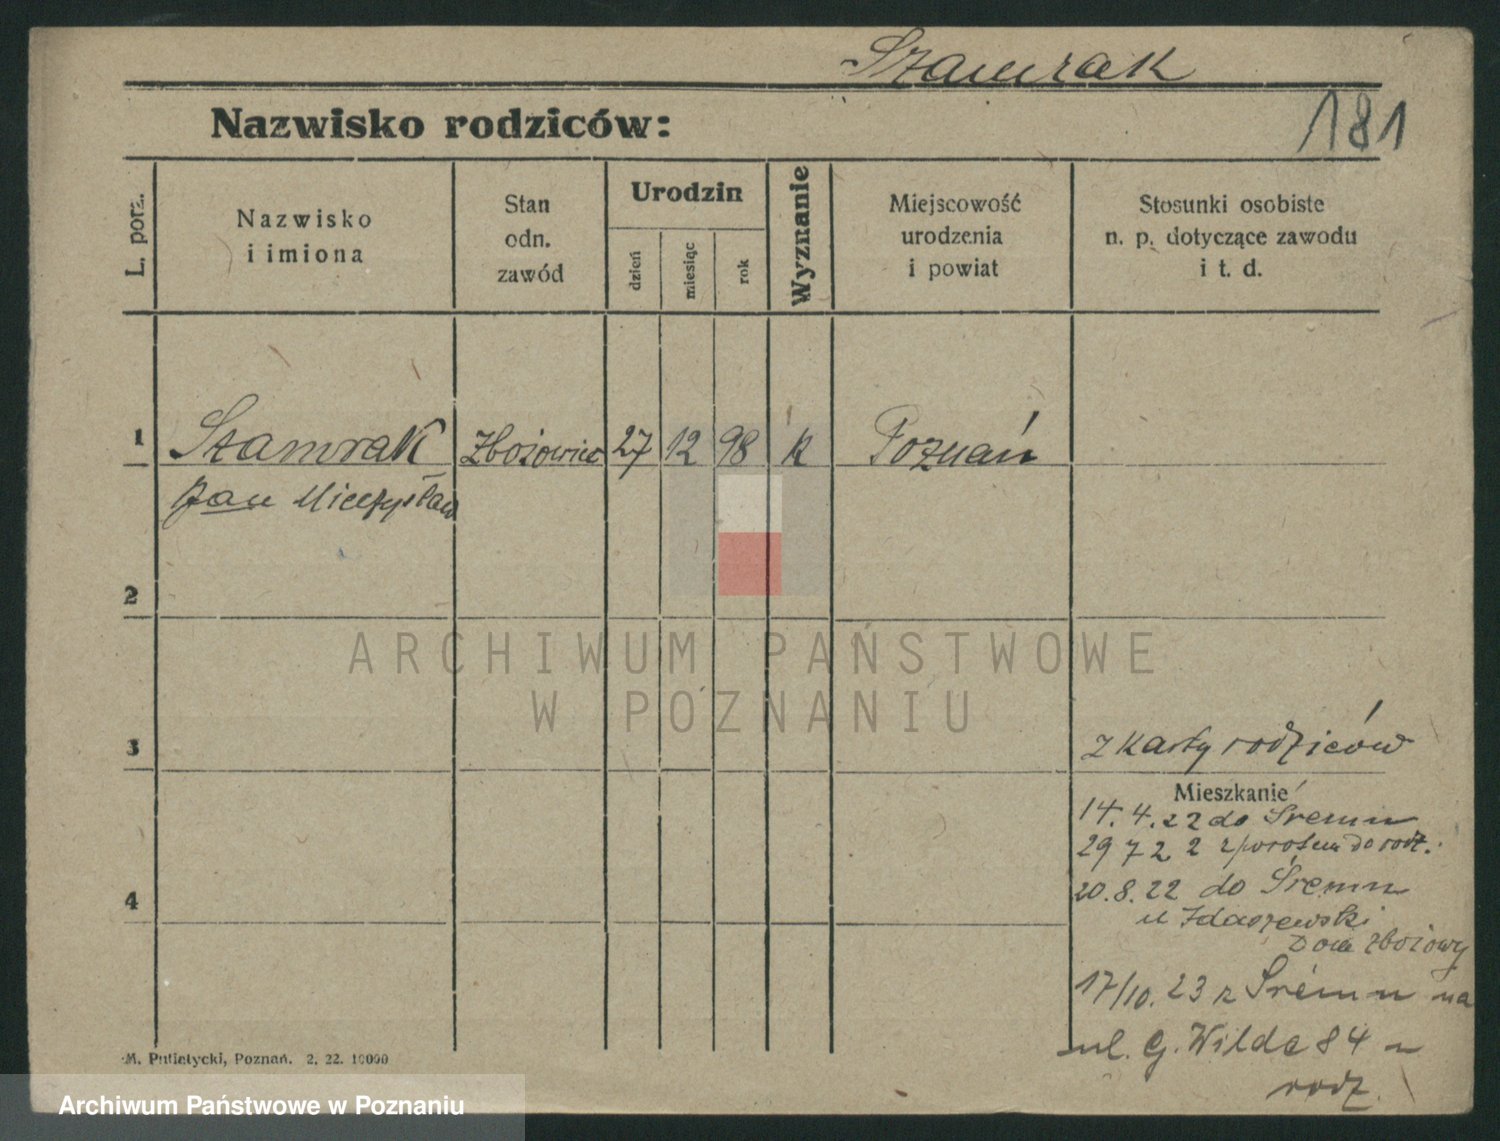 Szamrak
181
Nazwisko rodziców:
L. porz.
Nazwisko
i imiona
Stan
odn.
zawód
Urodzin
dzień
miesiąc
rok
Wyznanie
Miejscowość
urodzenia
i powiat
Stosunki osobiste
n. p. dotyczące zawodu
i t. d.
1 Szamrak Zbożowiec 27 12 98 k Poznań
Jan Mieczysław
2
ARCHIWUM PAŃSTWOWE
W POZNANIU
3
z karty rodziców
Mieszkanie
14.4.22 do Śremu
29 7 2 2 z powrotem do rodz.
4
20.8.22 do Śremu
u Zdaszewski
Dom zbożowy
17/10.23 z Śremu na
ul. G. Wilda 84 u
rodz.
M. Putiatycki, Poznań. 2. 22. 10000
Archiwum Państwowe w Poznaniu